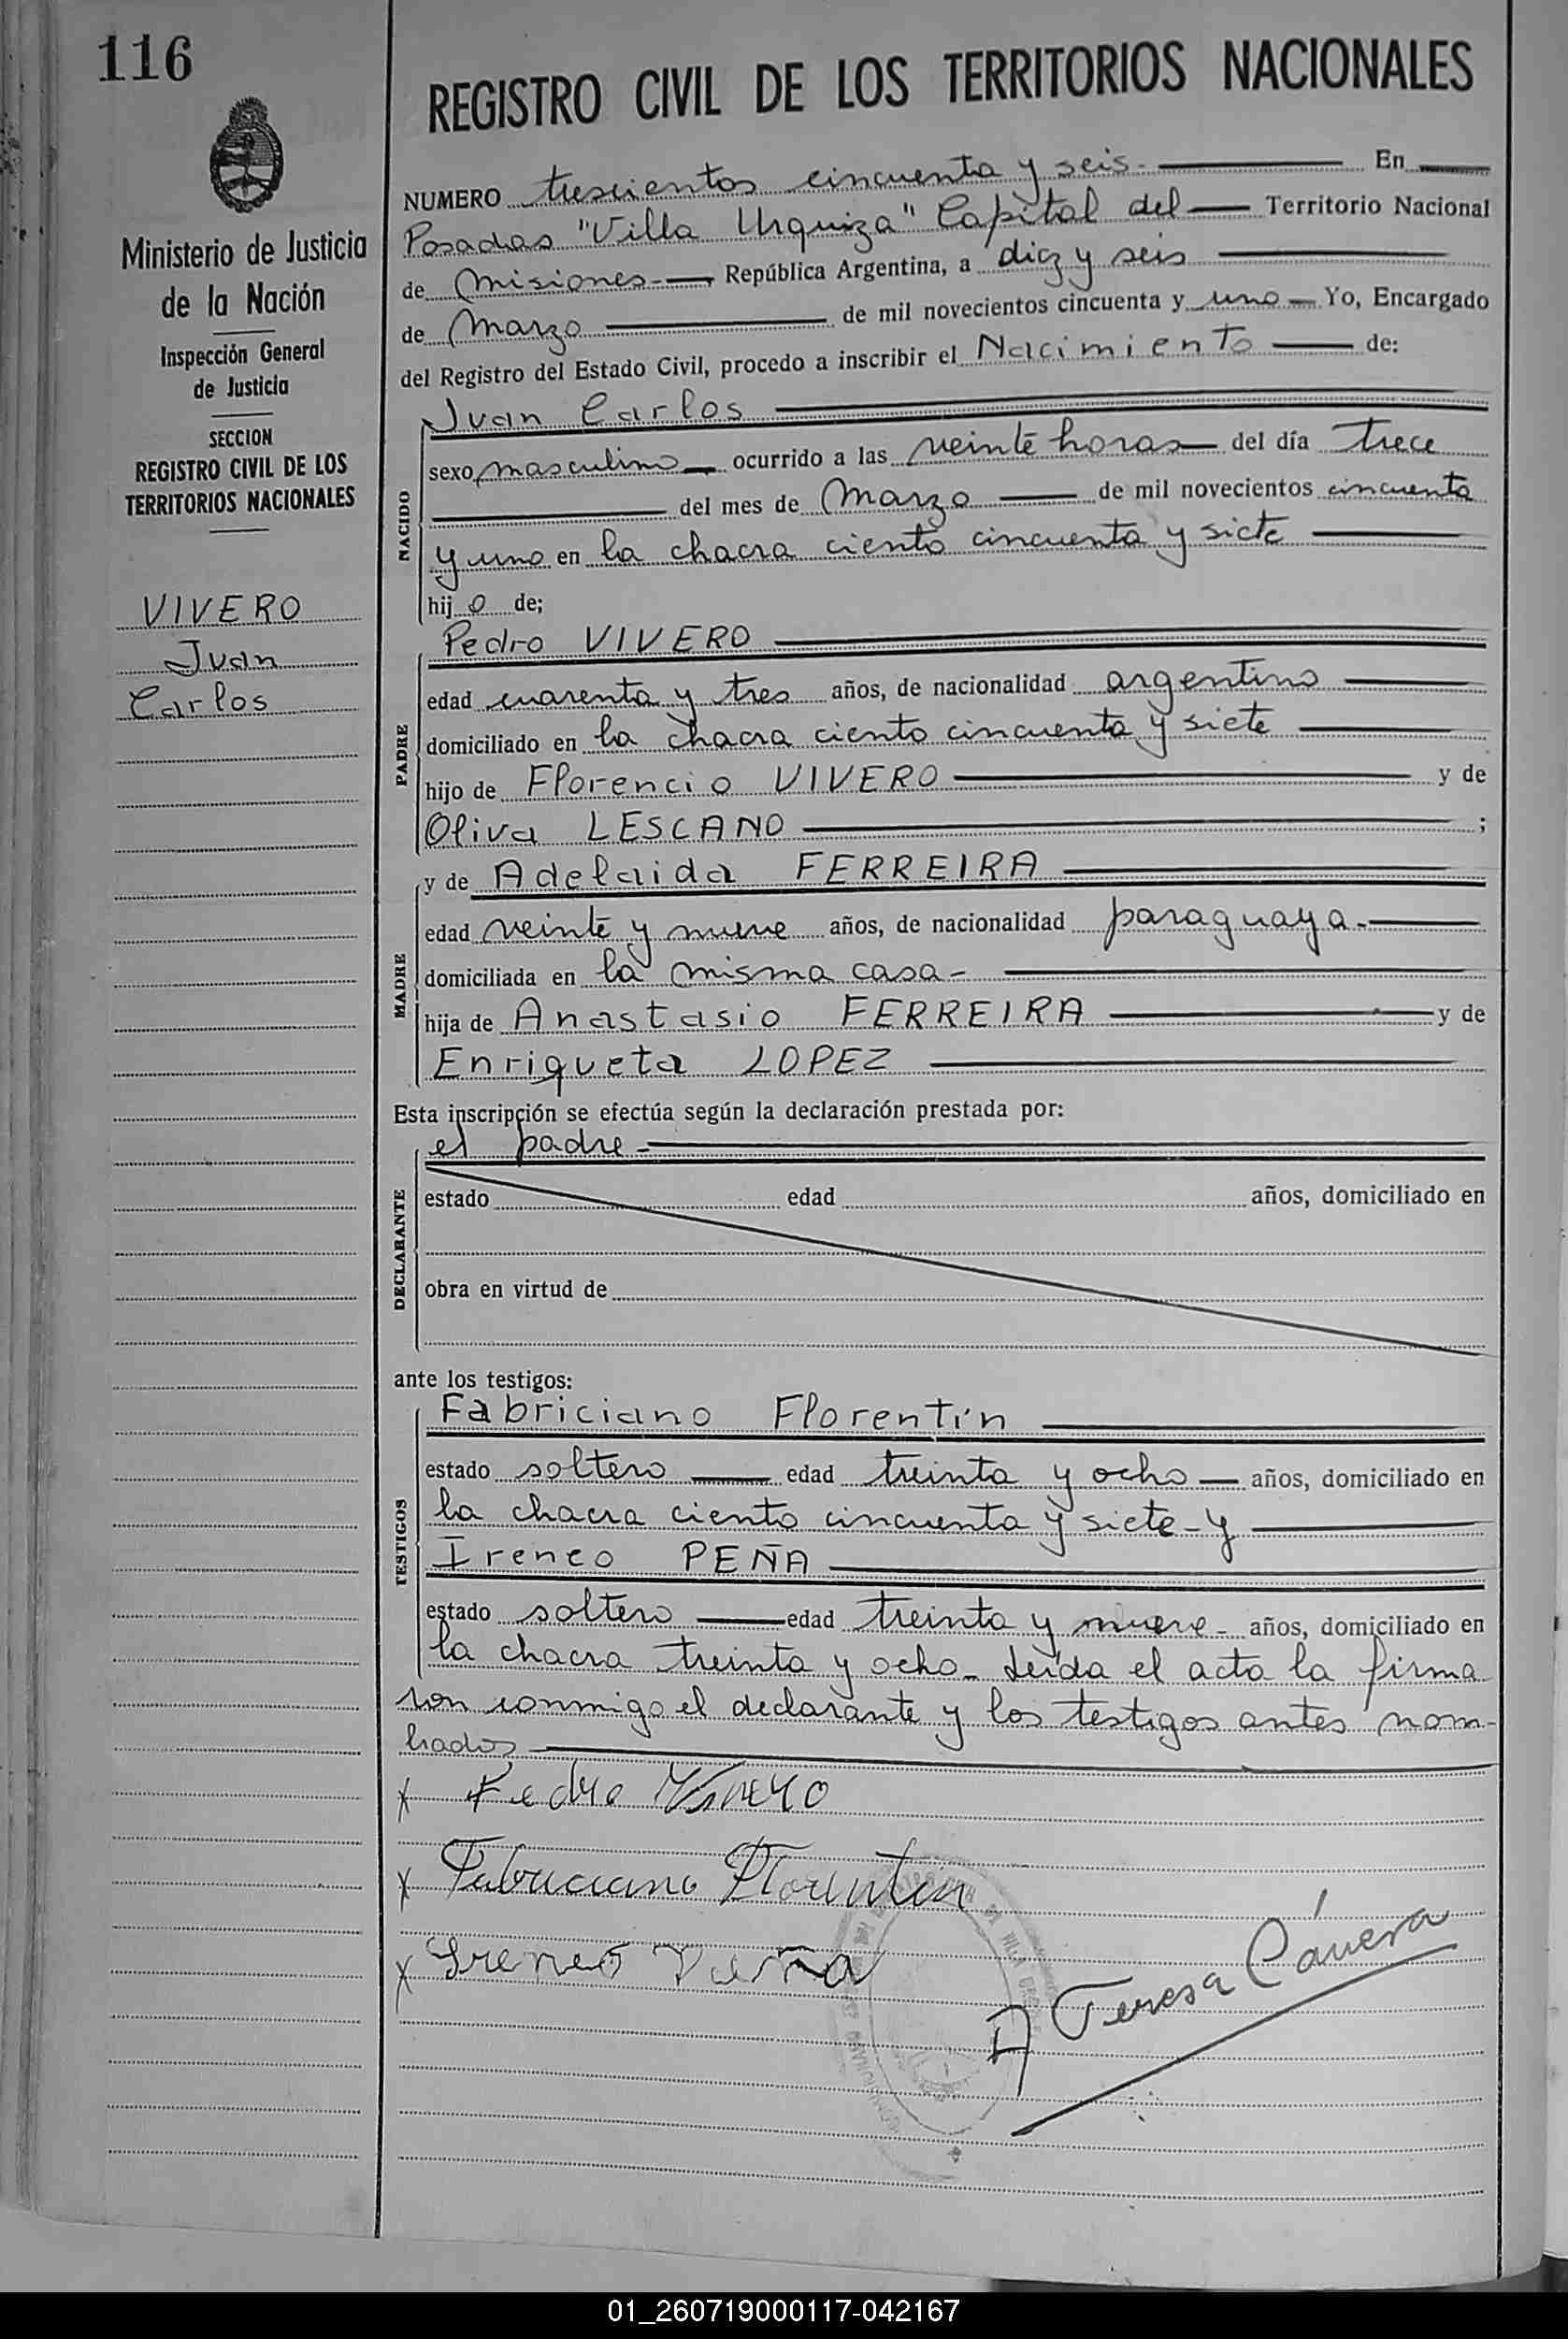 116
REGISTRO CIVIL DE LOS TERRITORIOS NACIONALES
Ministerio de Justicia
de la Nación
Inspección General
de Justicia
SECCION
REGISTRO CIVIL DE LOS
TERRITORIOS NACIONALES
VIVERO
Juan
Carlos
NUMERO trescientos cincuenta y seis.- En
Posadas "Villa Urquiza" Capital del Territorio Nacional
de Misiones.- República Argentina, a diez y seis
de Marzo de mil novecientos cincuenta y uno Yo, Encargado
del Registro del Estado Civil, procedo a inscribir el Nacimiento de:
NACIDO
Juan Carlos
sexo masculino ocurrido a las veinte horas del día trece
del mes de Marzo de mil novecientos cincuenta
y uno en la chacra ciento cincuenta y siete
hijo de;
PADRE
Pedro VIVERO
edad cuarenta y tres años, de nacionalidad argentino
domiciliado en la chacra ciento cincuenta y siete
hijo de Florencio VIVERO y de
Oliva LESCANO ;
MADRE
y de Adelaida FERREIRA
edad veinte y nueve años, de nacionalidad paraguaya.-
domiciliada en la misma casa-
hija de Anastasio FERREIRA y de
Enriqueta LOPEZ
Esta inscripción se efectúa según la declaración prestada por:
DECLARANTE
el padre-
estado edad años, domiciliado en
obra en virtud de
ante los testigos:
TESTIGOS
Fabriciano Florentín
estado soltero edad treinta y ocho años, domiciliado en
la chacra ciento cincuenta y siete-y
Ireneo PEÑA
estado soltero edad treinta y nueve- años, domiciliado en
la chacra treinta y ocho- Leída el acta la firma
ron conmigo el declarante y los testigos antes nom-
brados
x Pedro Vivero
x Fabriciano Florentin
x Ireneo Peña
A Teresa Cávera
01_260719000117-042167